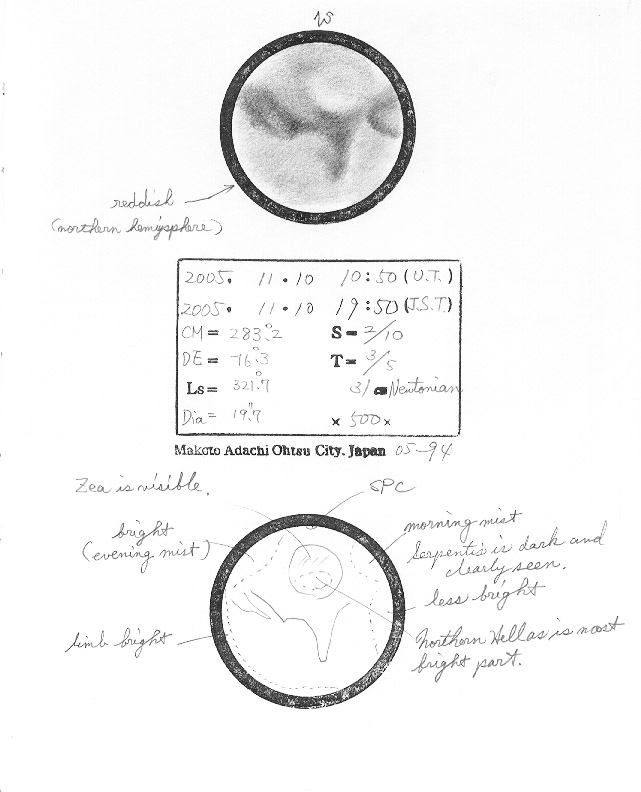 reddish
(northern hemisphere)
2005. 11.10 10:50 (U.T.)
2005. 11.10 19:50 (J.S.T.)
CM= 283°.2 S= 2/10
DE= -16°.3 T= 3/5
Ls= 321°.7 31 Newtonian
Dia= 19".7 × 500×
Makoto Adachi Ohtsu City. Japan 05-94
Zea is visible.
SPC
bright
(evening mist)
morning mist
Serpentis is dark and
clearly seen.
less bright
limb bright
Northern Hellas is most
bright part.